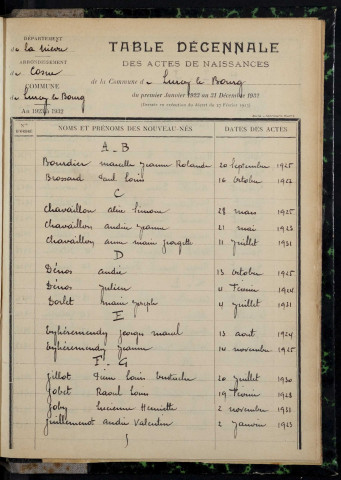 DÉPARTEMENT
de la Nièvre
ARRONDISSEMENT
de Cosne
COMMUNE
de Lurcy le Bourg
An 1923 à 1932
TABLE DÉCENNALE
DES ACTES DE NAISSANCES
de la Commune d e Lurcy le Bourg
du premier Janvier 1923 au 31 Décembre 1932
NOMS ET PRÉNOMS DES NOUVEAU-NÉS
DATES DES ACTES
A - B
Bourdier Marcelle Jeanne Rolande 20 septembre 1925
Brossard Paul Louis 16 octobre 1923
C
Chavaillon Aline Simone 28 mars 1925
Chavaillon Andrée Jeanne 21 mai 1923
Chavaillon Anne Marie Georgette 11 juillet 1931
D
Dénos André 13 octobre 1925
Dénos Julien 4 février 1924
Dorlet Marie Joseph 4 juillet 1931
E
Georges Marcel 13 août 1924
Jeanne 14 novembre 1925
F - G
Gillot Pierre Louis 20 juillet 1930
Gobet Raoul Louis 19 février 1928
Goby Lucienne Henriette 2 novembre 1931
Guillemenot André Valentin 2 janvier 1923